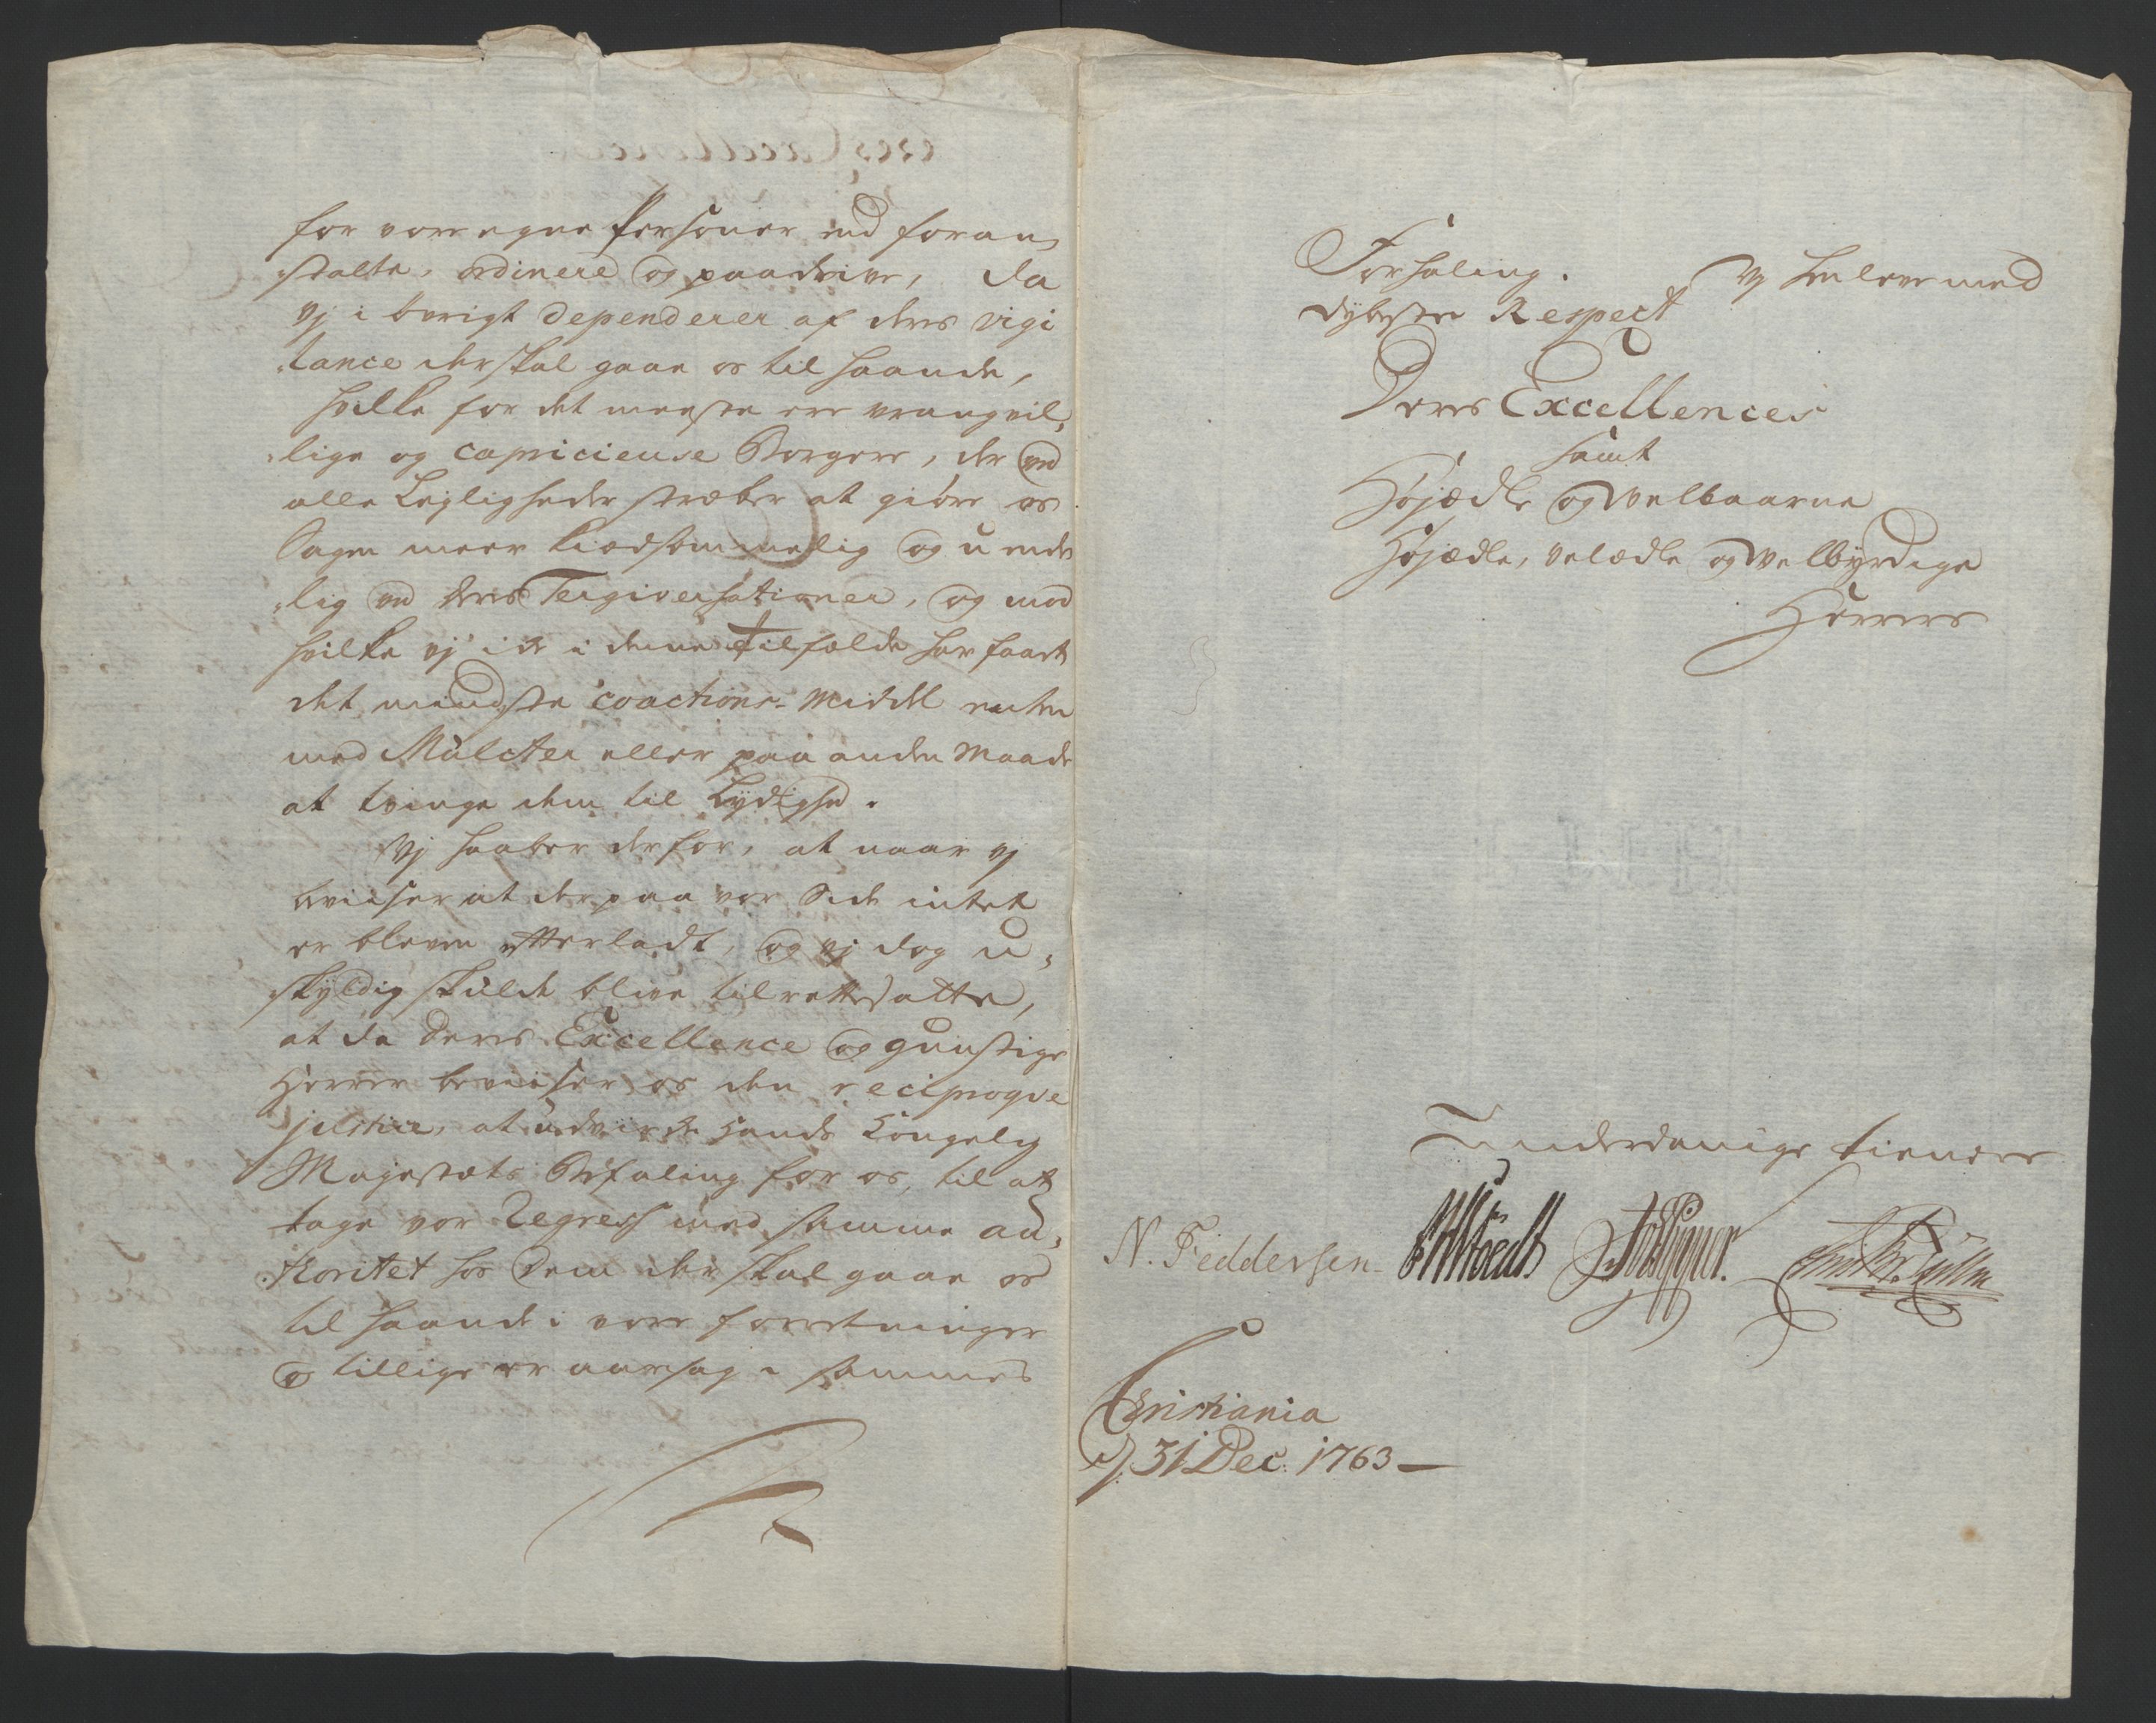 for vore egne Personer end foran,
stalte, ordinere og paadrive, da
vj i øvrigt dependerer af deres vigi
lance der skal gaae os til haande,
hvilke for det meeste ere vrangvil,
lige og capricieuse Borgere, der ved
alle Leyligheder stræber at giøre os
Sagen meer kiedsommelig og u ende
lig ved deres Tergiversationer, og mod
hvilke vj icke i denne tilfælde har faaet
det mindste coactions-Middel enten
med Mulcter eller paa anden Maade
at tvinge dem til Lydighed.
Vj haaber derfor, at naar vj
beviiser at der paa vor Side intet
er bleven efterladt, og vj dog u,
skyldig skulde blive tilrettesatte,
at da Deres Excellence og gunstige
Herrer beviiser os den reciproqve
justice, at udvirke Hands Kongelig
Majestæts Befaling for os, til at
tage vor Regress med samme au,
thoritet hos Dem der skal gaae os
til haande i vore forretninger
og tillige er aarsag i sammes
Forhaling. Vj henleve med
dybeste Respect
Deres Excellences
samt
Højædle og Velbaarne
Højædle, Velædle og Velbyrdige
Herrers
Underdanige tienere
N. Feddersen
Christiania
d. 31 Dec: 1763